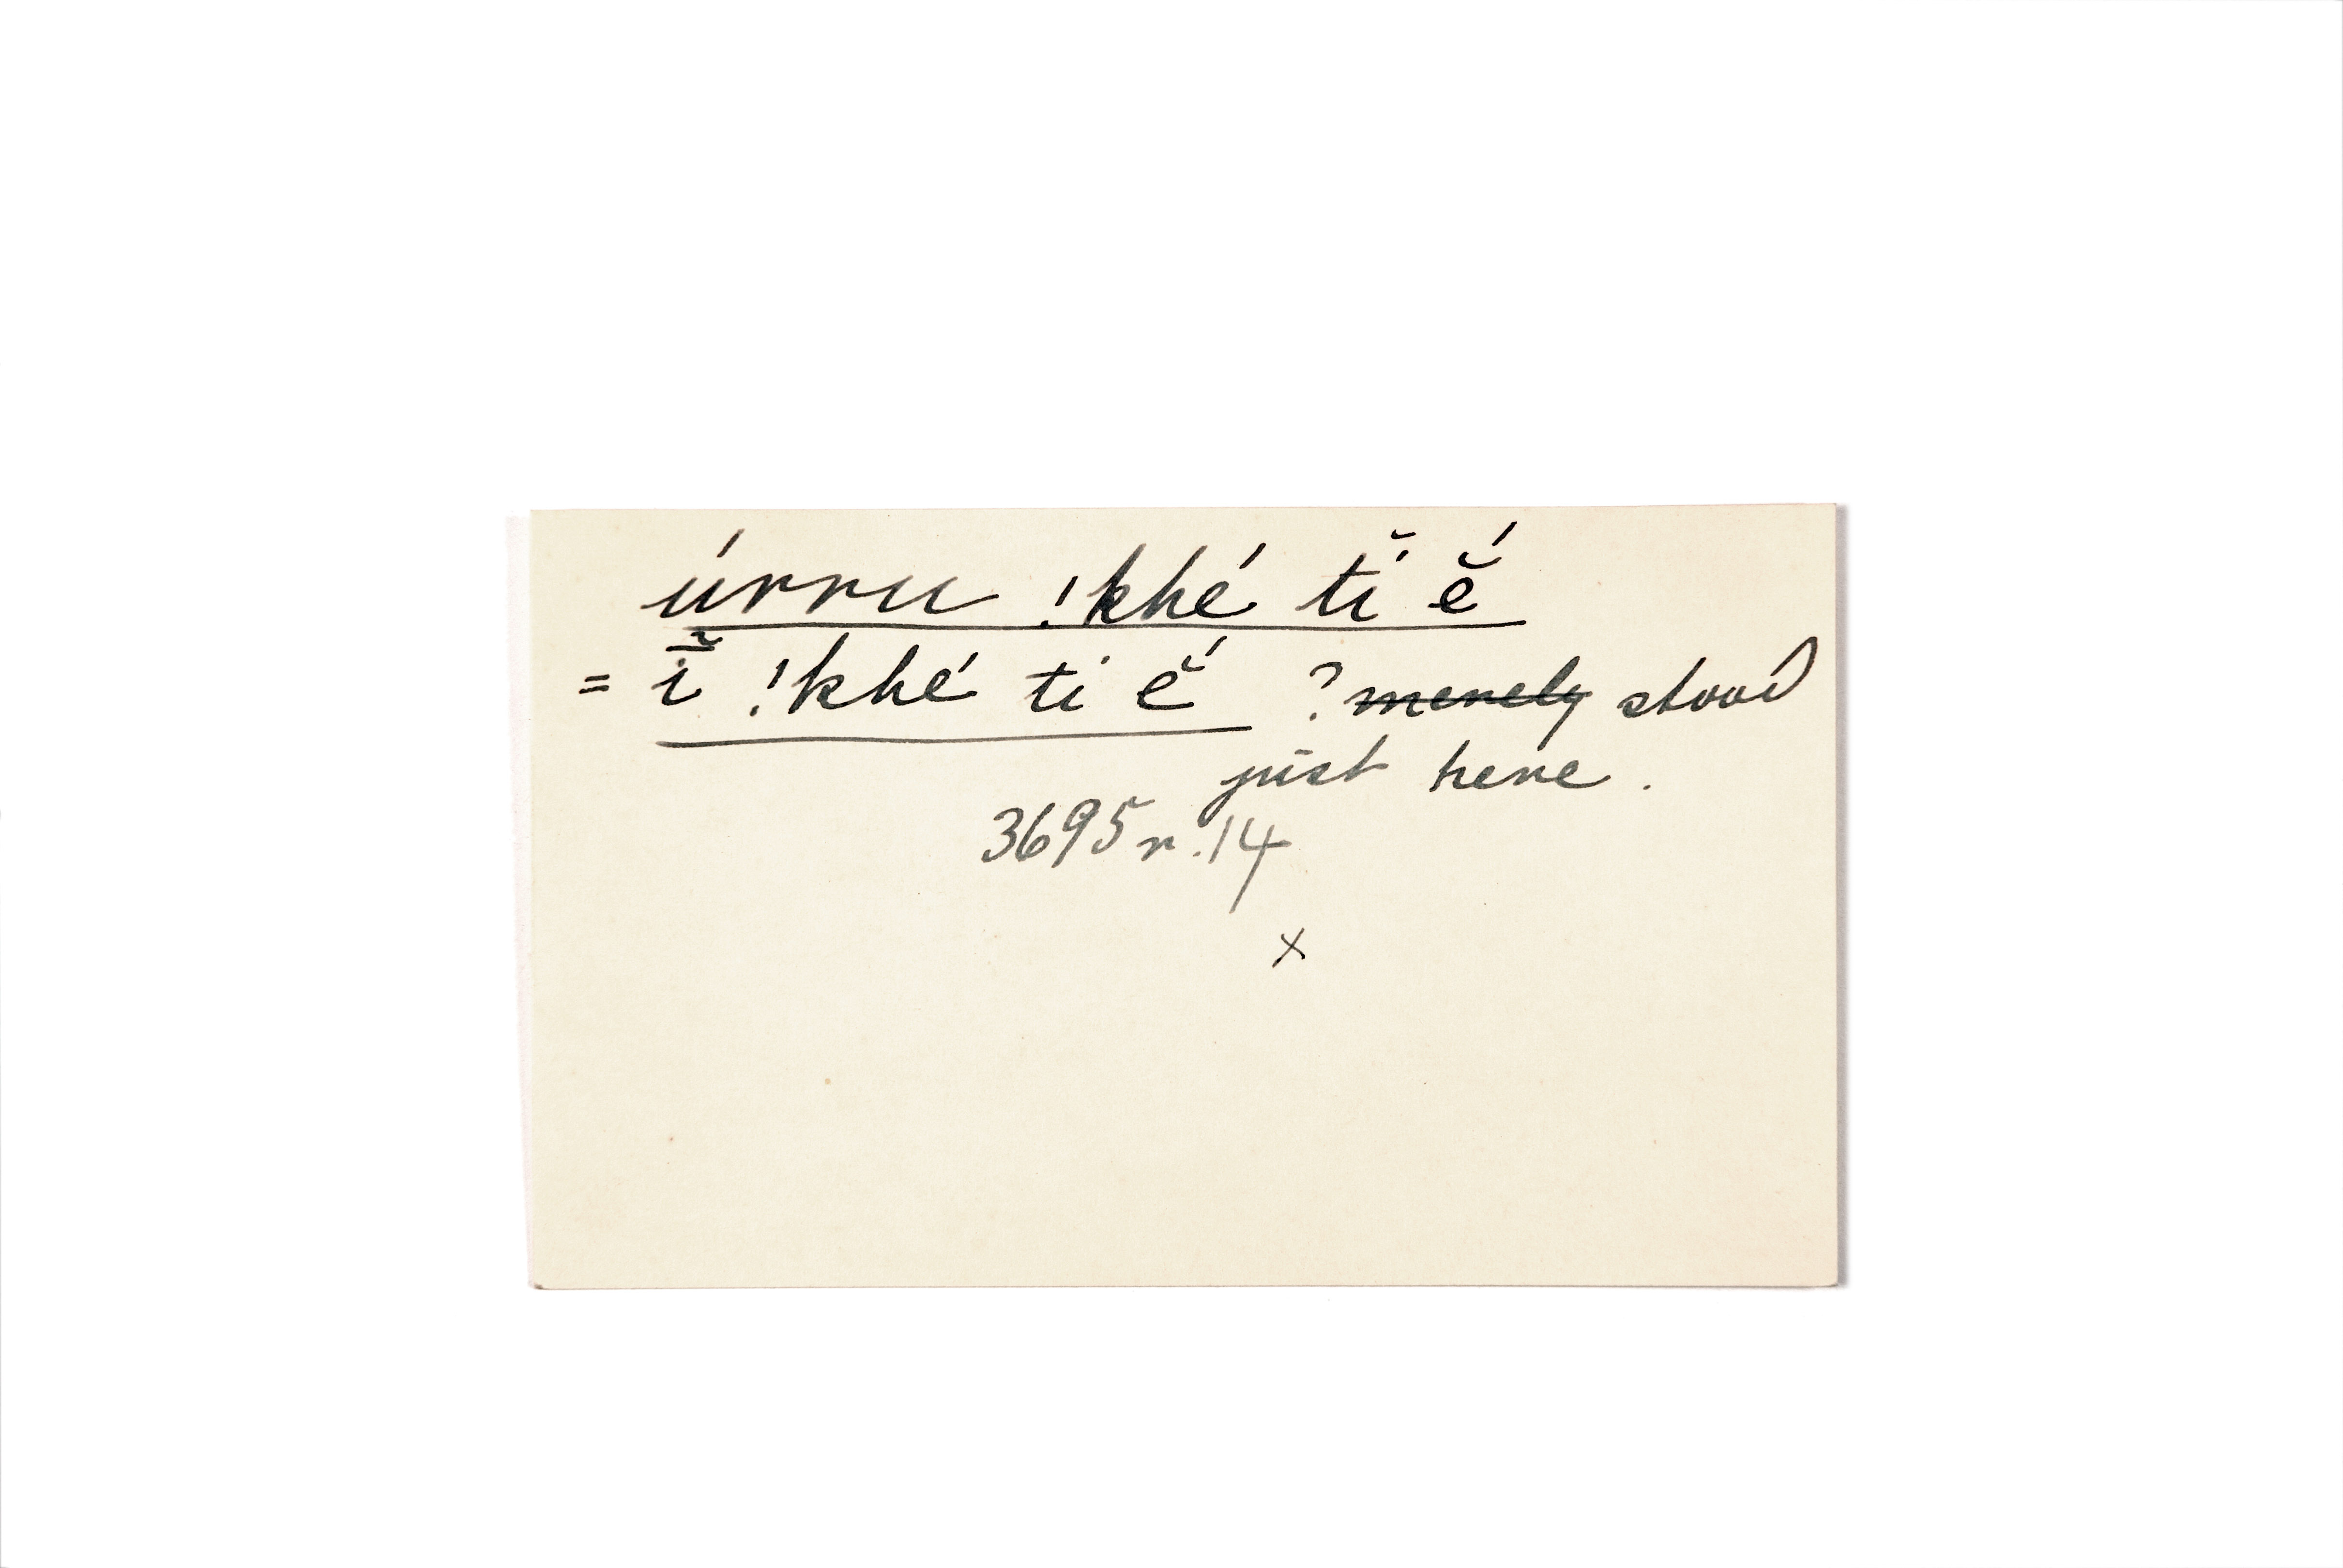 úrru !khé tĭ ĕ́
= ī̆ !khé ti ĕ́ ? ~~merely~~ stood
just here.
3695 r. 14
x